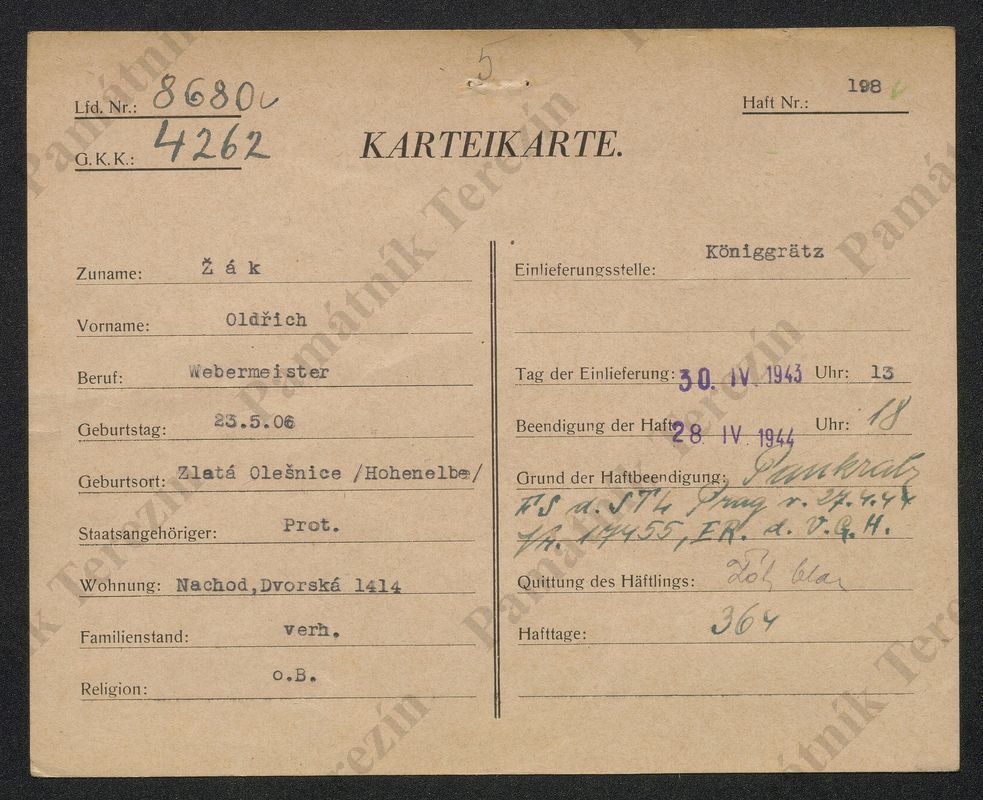 5
Lfd. Nr.: 8680
G.K.K.: 4262
Haft Nr.: 198
KARTEIKARTE.
Zuname: Žák
Vorname: Oldřich
Beruf: Webermeister
Geburtstag: 23.5.06
Geburtsort: Zlatá Olešnice /Hohenelbe/
Staatsangehöriger: Prot.
Wohnung: Nachod,Dvorská 1414
Familienstand: verh.
Religion: o.B.
Einlieferungsstelle: Königgrätz
Tag der Einlieferung: 30. IV. 1943 Uhr: 13
Beendigung der Haft: 28 IV 1944 Uhr: 18
Grund der Haftbeendigung: Pankratz
FS d. STL Prag v. 27.4.44
17455, ER. d. V.G.H.
Quittung des Häftlings:
Hafttage: 364
Památník Terezín
Památník Terezín
Památník Terezín
Památník Terezín